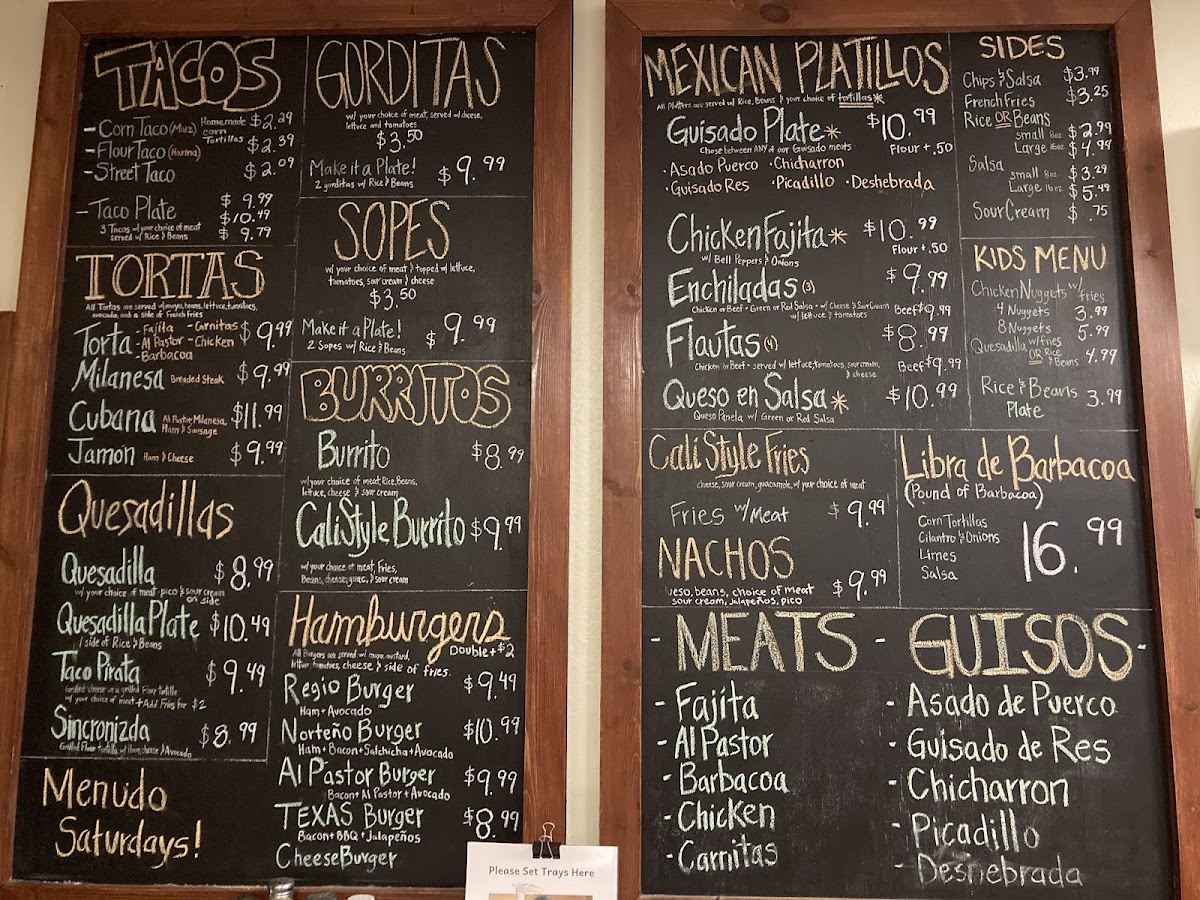 TACOS
- Corn Taco (Maiz) Homemade corn Tortillas $2.29
- Flour Taco (Harina) $2.39
- Street Taco $2.09
- Taco Plate $9.99
$10.49
3 Tacos w/ your choice of meat $9.79
served w/ Rice & Beans
TORTAS
All Tortas are served w/ mayo, beans, lettuce, tomatoes,
avocado, and a side of French Fries
Torta - Fajita - Carnitas $9.99
- Al Pastor - Chicken
- Barbacoa
Milanesa Breaded Steak $9.99
Cubana Al Pastor, Milanesa, $11.99
Ham & Sausage
Jamon Ham & Cheese $9.99
Quesadillas
Quesadilla $8.99
w/ your choice of meat · pico & sour cream
on side
Quesadilla Plate $10.49
/ side of Rice & Beans
Taco Pirata $9.49
Grilled cheese in a grilled Flour tortilla
w/ your choice of meat + Add Fries for $2
Sincronizda $8.99
Grilled Flour tortilla w/ Ham, cheese & Avocado
Menudo
Saturdays!
GORDITAS
w/ your choice of meat, served w/ cheese,
lettuce and tomatoes
$3.50
Make it a Plate! $9.99
2 gorditas w/ Rice & Beans
SOPES
w/ your choice of meat & topped w/ lettuce,
tomatoes, sour cream & cheese
$3.50
Make it a Plate! $9.99
2 Sopes w/ Rice & Beans
BURRITOS
Burrito $8.99
w/ your choice of meat, Rice, Beans,
lettuce, cheese & sour cream
Cali Style Burrito $9.99
w/ your choice of meat, Fries,
Beans, cheese, guac, & sour cream
Hamburgers
Double + $2
All Burgers are served w/ mayo, mustard,
lettuce, tomatoes, cheese & side of fries.
Regio Burger $9.49
Ham + Avocado
Norteño Burger $10.99
Ham + Bacon + Salchicha + Avocado
Al Pastor Burger $9.99
Bacon + Al Pastor + Avocado
TEXAS Burger $8.99
Bacon + BBQ + Jalapeños
Cheese Burger
Please Set Trays Here
MEXICAN PLATILLOS
All Platters are served w/ Rice, Beans & your choice of tortillas*
Guisado Plate* $10.99
Chose between ANY of our Guisado meats Flour + .50
· Asado Puerco · Chicharron
· Guisado Res · Picadillo · Deshebrada
Chicken Fajita* $10.99
w/ Bell Peppers & Onions Flour + .50
Enchiladas (3) $9.99
Chicken or Beef - Green or Red Salsa - w/ Cheese & Sour Cream Beef $9.99
w/ lettuce & tomatoes
Flautas (4) $8.99
Chicken or Beef - served w/ lettuce, tomatoes, sour cream, Beef $9.99
& cheese
Queso en Salsa* $10.99
Queso Panela w/ Green or Red Salsa
SIDES
Chips & Salsa $3.99
French Fries $3.25
Rice OR Beans
small 8oz $2.99
Large 16oz $4.99
Salsa
small 8oz $3.29
Large 16oz $5.49
Sour Cream $.75
KIDS MENU
Chicken Nuggets w/ fries
4 Nuggets 3.99
8 Nuggets 5.99
Quesadilla w/ fries
OR Rice & Beans 4.99
Rice & Beans 3.99
Plate
Cali Style Fries
cheese, sour cream, guacamole, w/ your choice of meat
Fries w/ Meat $9.99
NACHOS
ueso, beans, choice of meat $9.99
sour cream, jalapeños, pico
Libra de Barbacoa
(Pound of Barbacoa)
Corn Tortillas
Cilantro & Onions
Limes
Salsa
16.99
- MEATS -
- Fajita
- Al Pastor
- Barbacoa
- Chicken
- Carnitas
GUISOS -
- Asado de Puerco
- Guisado de Res
- Chicharron
- Picadillo
- Deshebrada